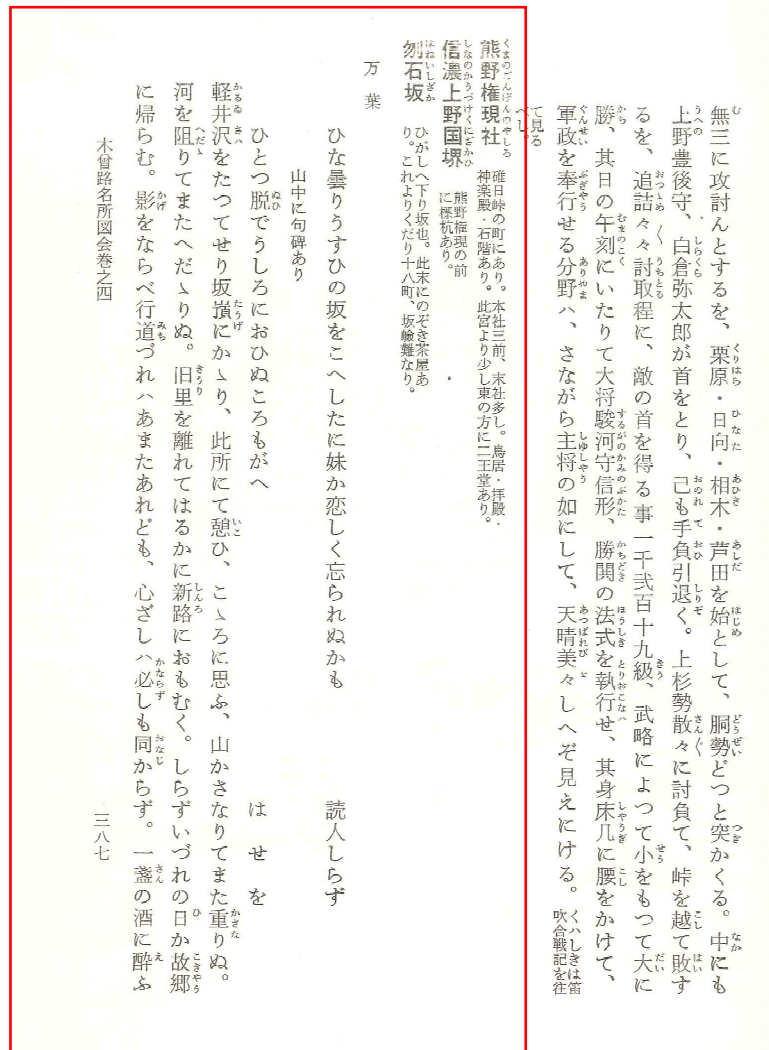 無三に攻討んとするを、栗原・日向・相木・芦田を始として、胴勢どつと突かくる。中にも
上野豊後守、白倉弥太郎が首をとり、己も手負引退く。上杉勢散々に討負て、峠を越て敗す
るを、追詰々々討取程に、敵の首を得る事一千弐百十九級、武略によつて小をもつて大に
勝、其日の午刻にいたりて大将駿河守信形、勝関の法式を執行せ、其身床几に腰をかけて、
軍政を奉行せる分野ハ、さながら主将の如にして、天晴美々しへぞ見えにける。くハしきは笛
吹合戦記を往
て見る
べし。
熊野権現社 碓日峠の町にあり。本社三前、末社多し。鳥居・拝殿・
神楽殿・石階あり。此宮より少し東の方に二王堂あり。
信濃上野国堺 熊野権現の前
に標杭あり。
刎石坂 ひがしへ下り坂也。此末にのぞき茶屋あ
り。これよりくだり十八町、坂嶮難なり。
万葉
ひな曇りうすひの坂をこへしたに妹か恋しく忘られぬかも 読人しらず
山中に句碑あり
ひとつ脱でうしろにおひぬころもがへ はせを
軽井沢をたつてせり坂嶺にかゝり、此所にて憩ひ、こゝろに思ふ、山かさなりてまた重りぬ。
河を阻りてまたへだゝりぬ。旧里を離れてはるかに新路におもむく。しらずいづれの日か故郷
に帰らむ。影をならべ行道づれハあまたあれども、心ざしハ必しも同からず。一盞の酒に酔ふ
木曾路名所図会巻之四
三八七